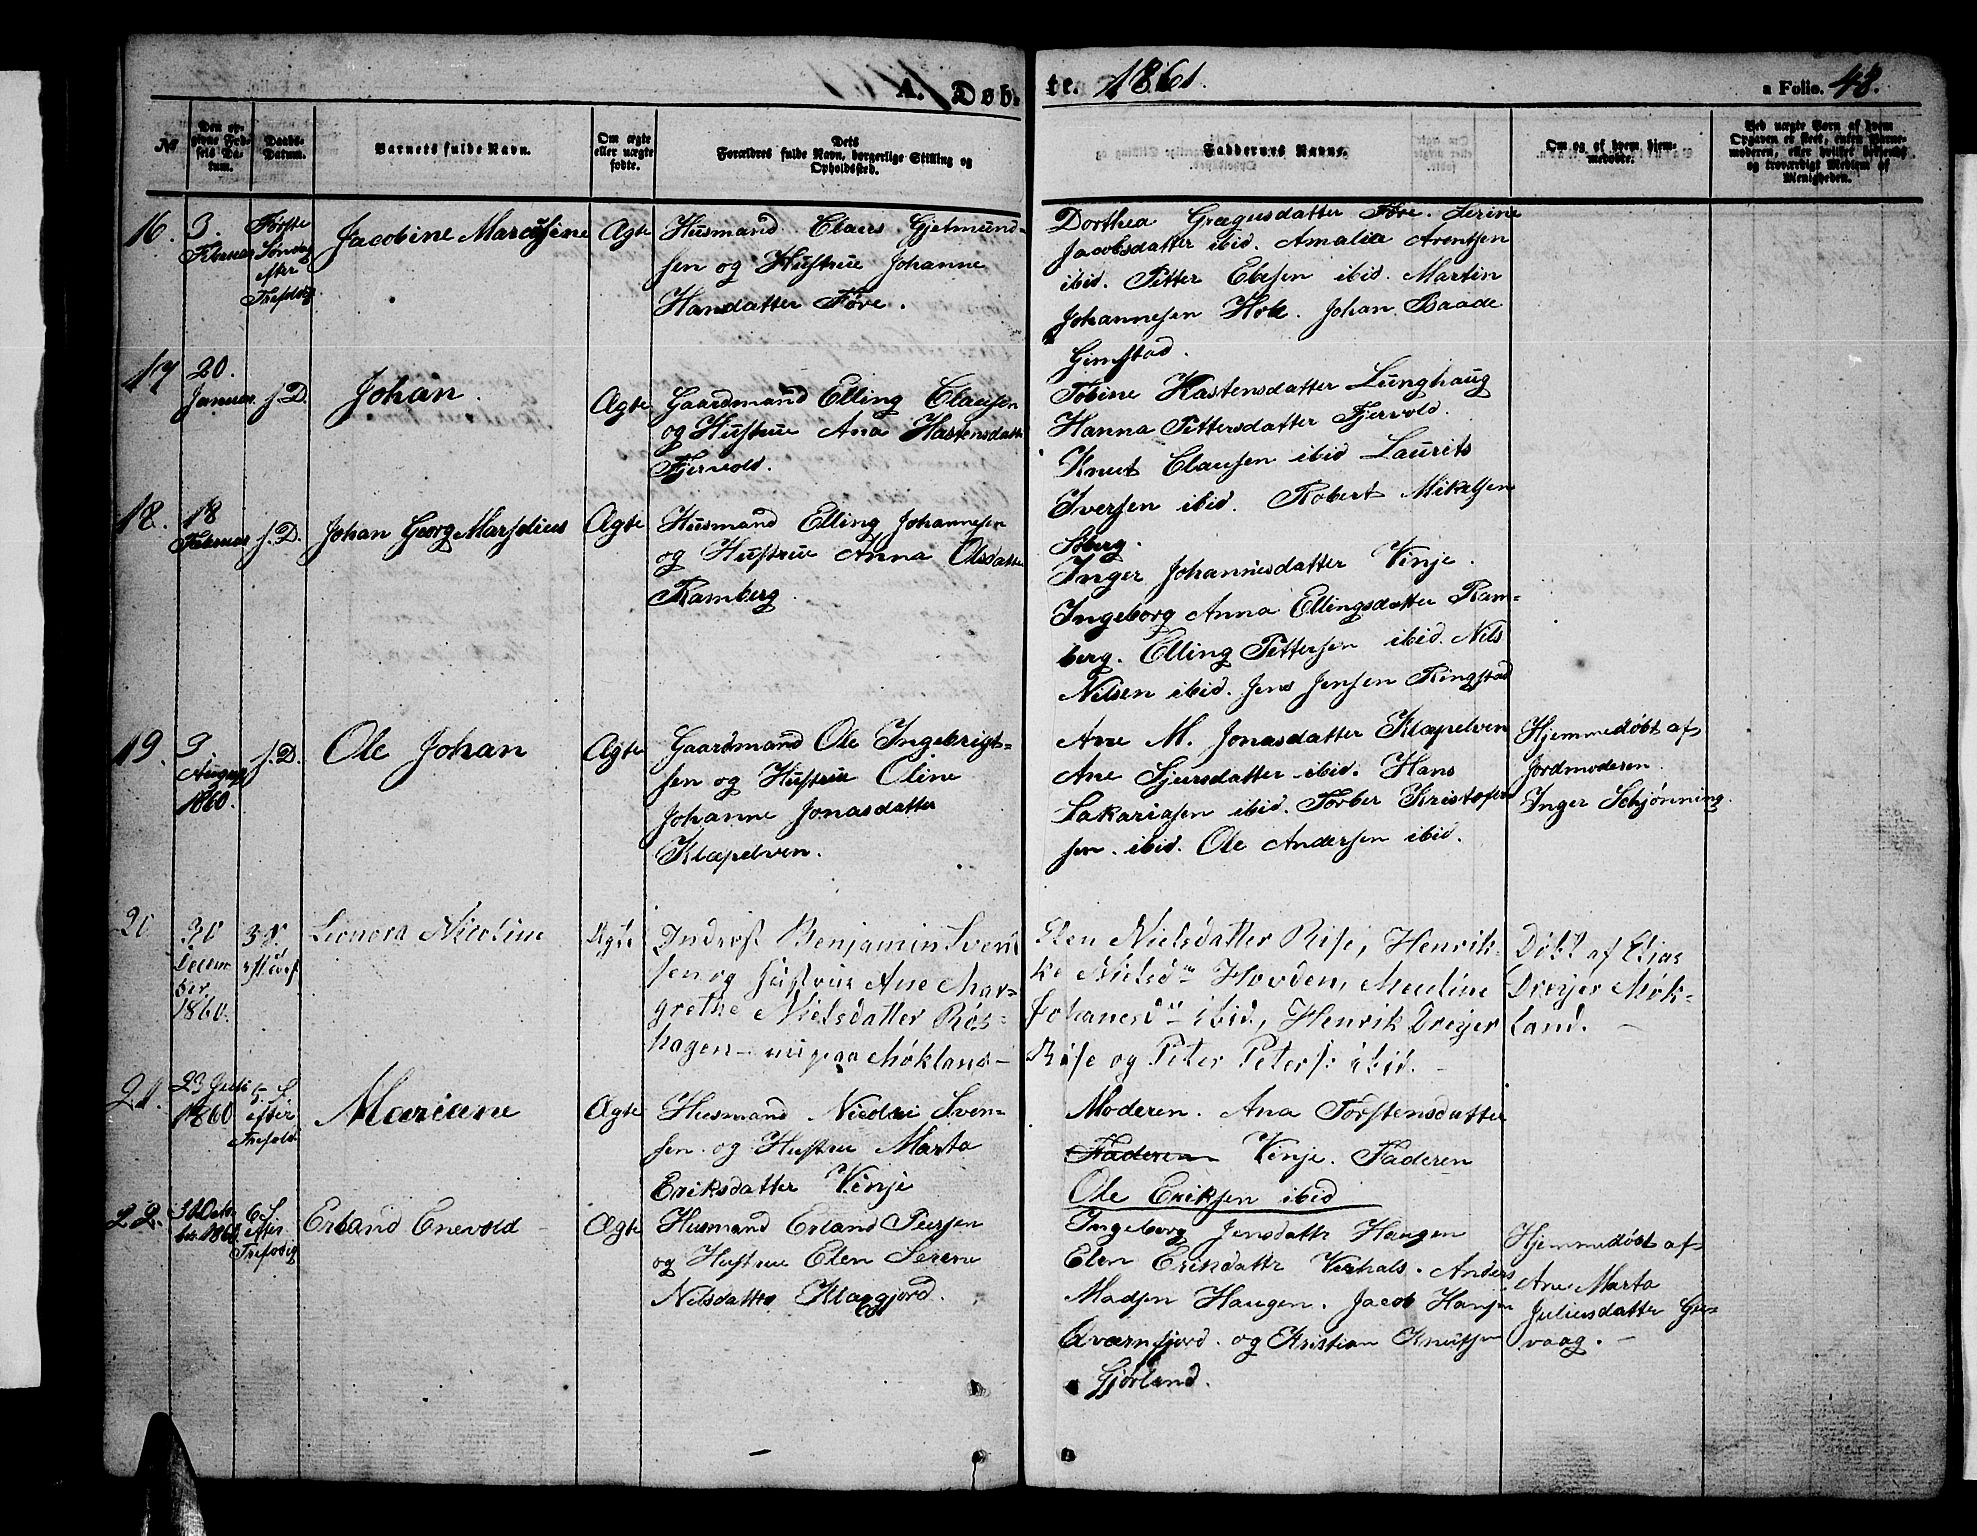 A. Døb-
te. 1861.
a Folio. 48.
No
Den opgivne Fødsels Datum.
Daabs-Datum.
Barnets fulde Navn.
Om ægte eller uægte fødte.
Dets
Forældres fulde Navn, borgerlige Stilling og
Opholdssted.
Faddernes Navne.
Om og af hvem hjemmedøbt.
16.
3.
Februar
Første
Søndag
efter
Trefoldig
Jacobine Marcusine
Ægte
Husmand Claus Gjetmund-
sen og Hustrue Johanne
Hansdatter Føre.
Dorthea Grægusdatter Føre. Serine
Jacobsdatter ibid. Amalia Arentsen
ibid. Petter Ebesen ibid. Martin
Johannesen Hole. Johan Baade
Gimstad.
17
20.
Januar
s. D.
Johan.
Ægte
Gaardmand Elling Clausen
og Hustrue Ana Hastensdatter
Fjervold.
Tobine Hastensdatter Lunghaug
Hanna Pettersdatter Fjervold.
Knut Clausen ibid Laurits
Iversen ibid. Robert Mikelsen
Søberg.
18.
18
Februar
s. D.
Johan Georg Marselius
Ægte
Husmand Elling Johannesen
og Hustrue Anna Olsdatter
Ramberg.
Inger Johannesdatter Vinje.
Ingeborg Anna Ellingsdatter Ram-
berg. Elling Pettersen ibid. Nils
Nilsen ibid. Jens Jensen Ringstad
19.
3.
August
1860.
s. D.
Ole Johan
Ægte
Gaardmand Ole Ingebrigt-
sen og Hustrue Oline
Johanne Jonasdatter
Klæpelven.
Ane M. Jonasdatter Klæpelven
Ane Sjursdatter ibid. Hans
Sakariasen ibid. Torber Kristofer-
sen. ibid. Ole Andersen ibid.
Hjemmedøbt af
Jordmoderen.
Inger Schjønning.
20
30
Decem
ber
1860.
Leonora Nicoline
Ægte
Inderst Benjamin Svend
sen og Hustrue Ane Mar-
grethe Nielsdatter Rös-
hagen - nu paa Møkland -
Elen Nielsdatter Rise, Henrik-
ke Nielsdtr Hovden, Meuline
Johanesdtr ibid., Henrik Dreyer
Rise og Peter Peters: ibid.
Døbt af Elias
Dreyer Møk-
land. -
21.
23 Juli
1860
5. S.
efter
Trefold.
Mariane
Ægte
Husmand Nicolai Sven-
sen. og Hustrue Marta
Eriksdatter Vinje
Moderen. Ana Torstensdatter
Faderen Vinje. Faderen
Ole Eriksen ibid
22.
1860
6. S.
efter
Trefoldig
Erland Enevold
Ægte
Husmand Erland Peersen
og Hustrue Elen Serene
Nelsdatter Klaagjord.
Ingeborg Jensdattr Haugen
Elen Eriksdattr Verhals. Anders
Madsen Haugen. Jacob Hansen
Qværnfjord. og Kristian Knutsen
Gjørland.
Hjemmedøbt af
Ane Marta
Juliusdatter Gun-
vaag. -